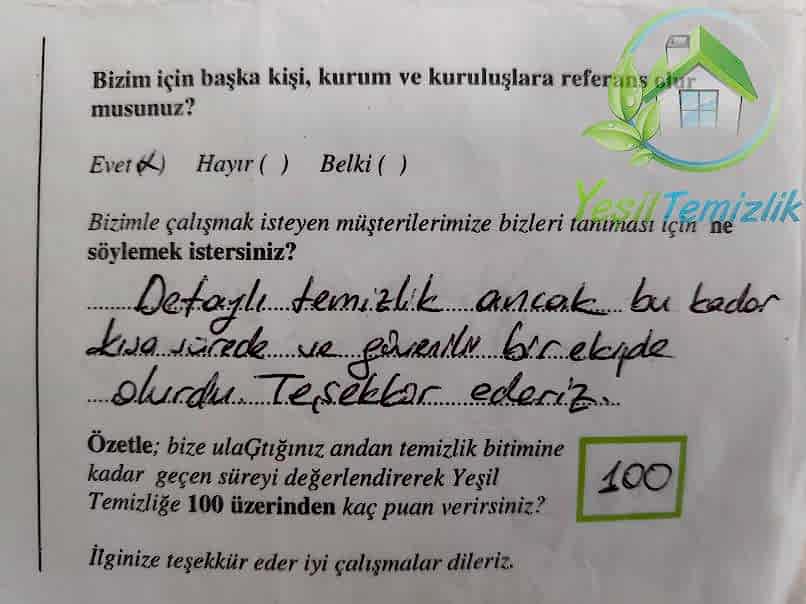 Bizim için başka kişi, kurum ve kuruluşlara referans olur
musunuz?
Evet (X) Hayır ( ) Belki ( )
YeşilTemizlik
Bizimle çalışmak isteyen müşterilerimize bizleri tanıması için ne
söylemek istersiniz?
Detaylı temizlik ancak bu kadar
kısa sürede ve güvenilir bir ekiple
olurdu. Teşekkür ederiz.
Özetle; bize ulaGtığınız andan temizlik bitimine
kadar geçen süreyi değerlendirerek Yeşil
Temizliğe 100 üzerinden kaç puan verirsiniz?
100
İlginize teşekkür eder iyi çalışmalar dileriz.